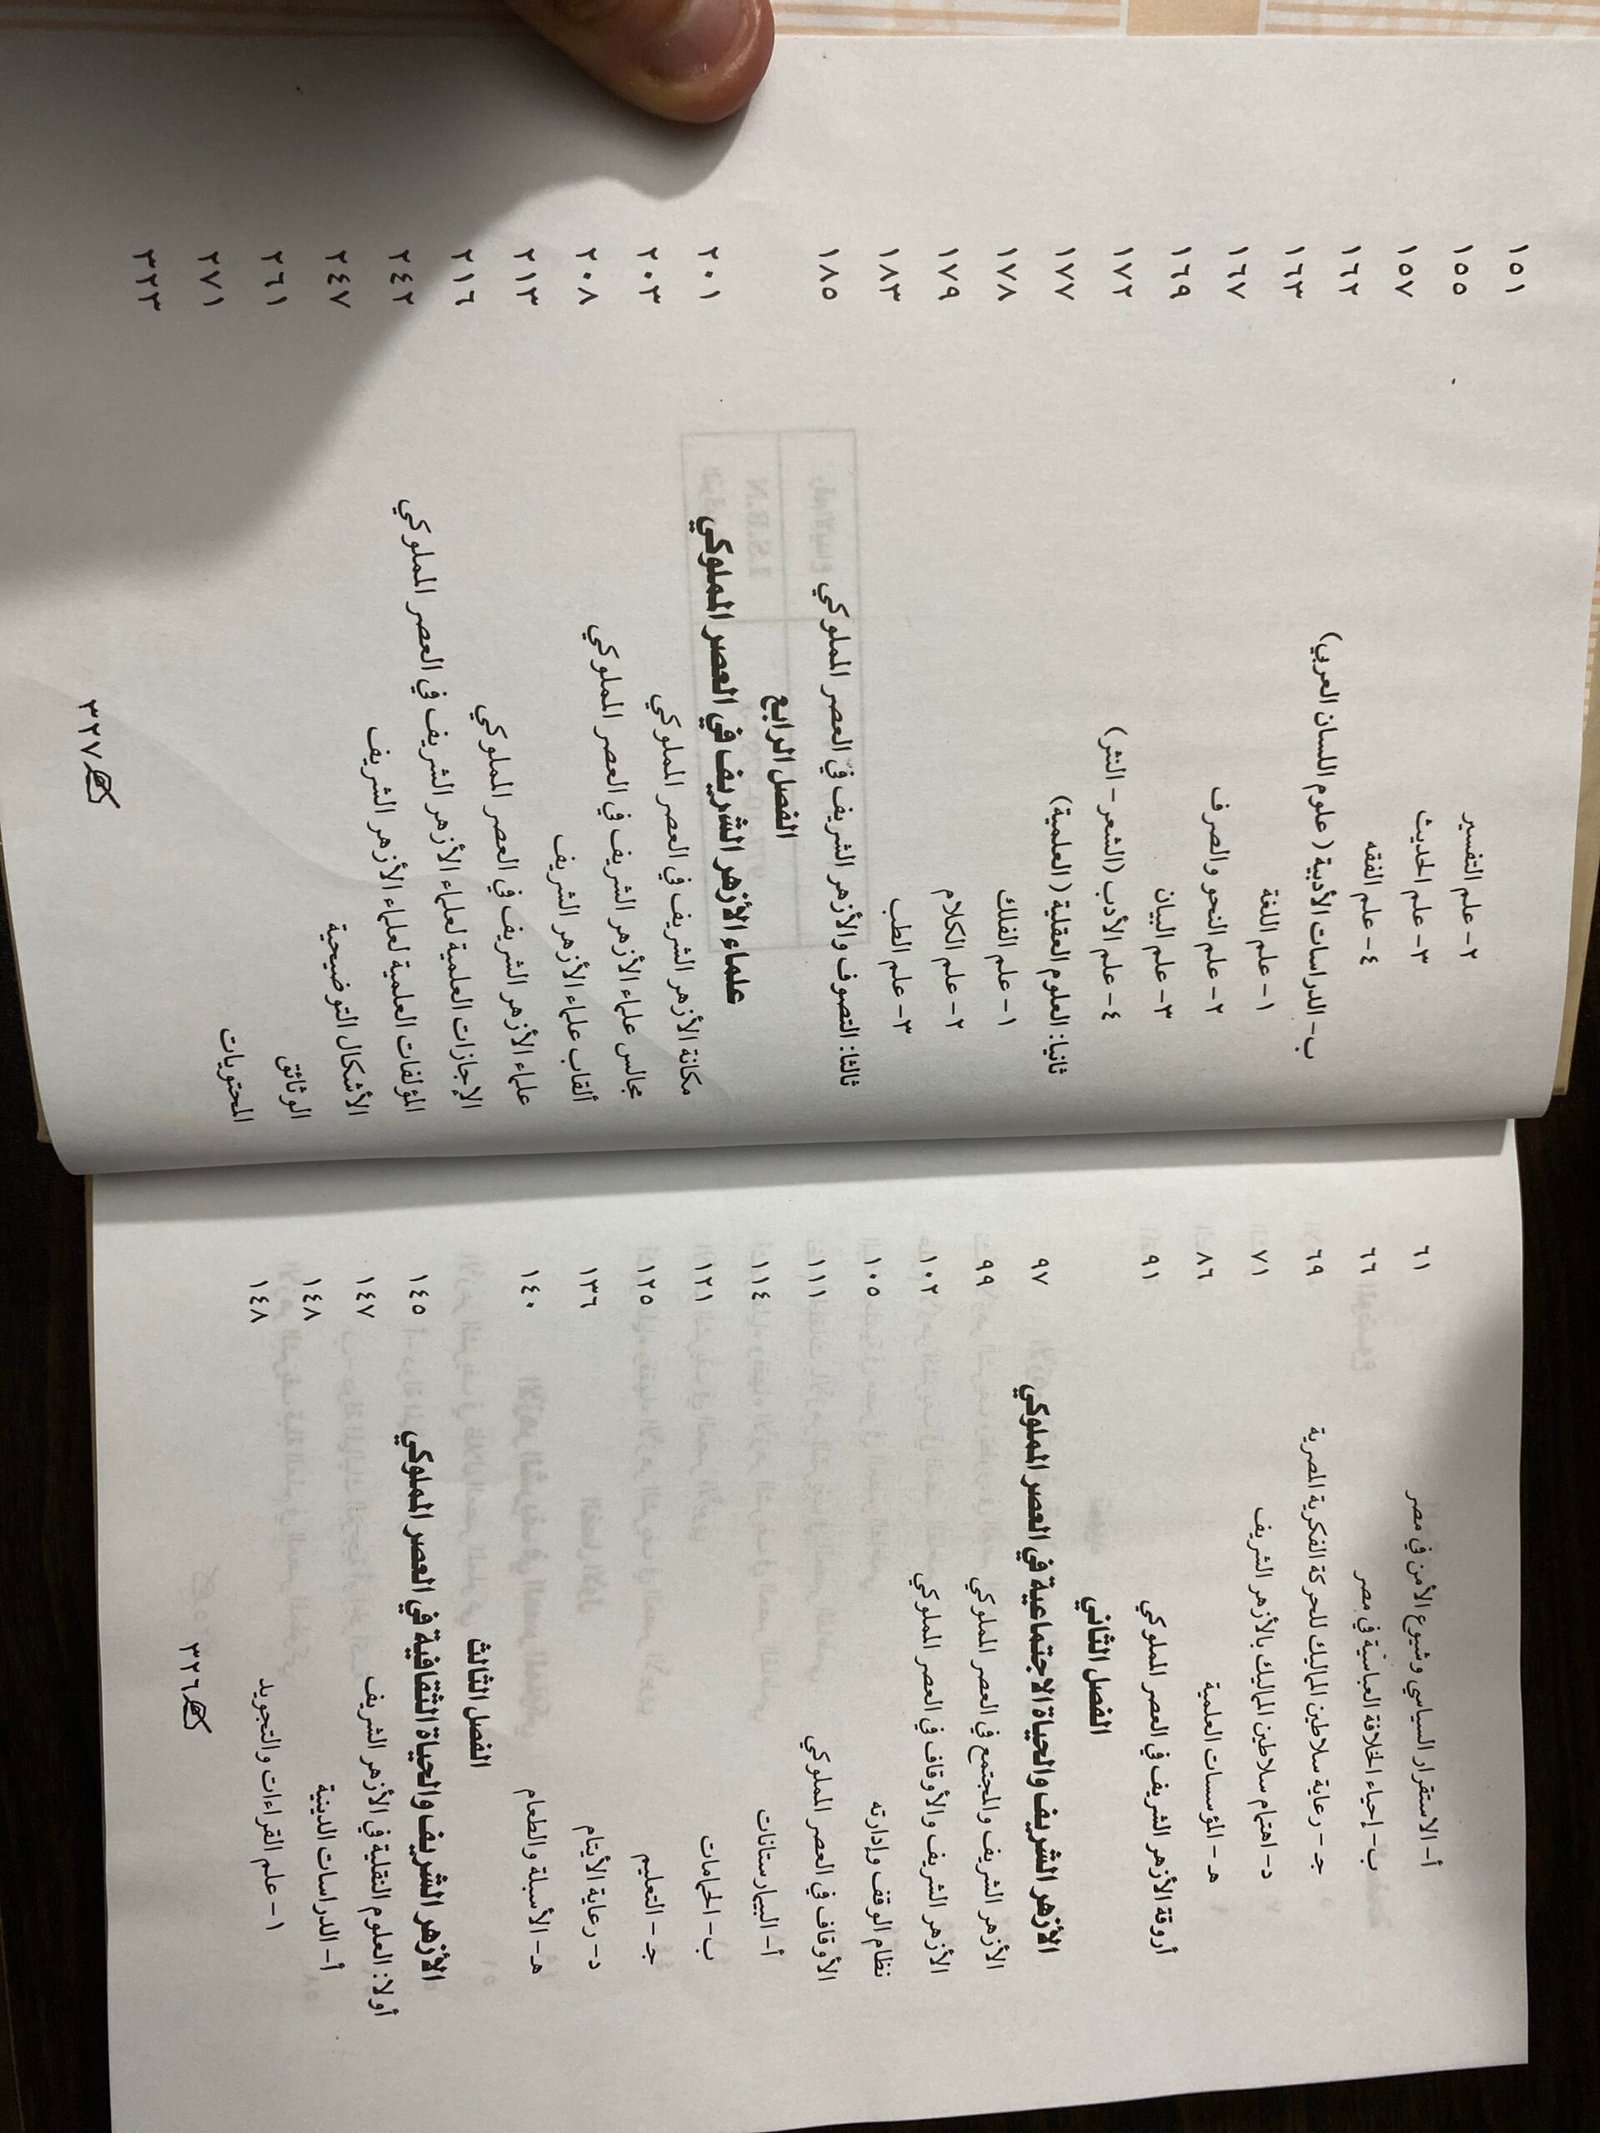 أ- الاستقرار السياسي وشيوع الأمن في مصر ٦١
ب- إحياء الخلافة العباسية في مصر ٦٦
جـ- رعاية سلاطين المماليك للحركة الفكرية المصرية ٦٩
د- اهتمام سلاطين المماليك بالأزهر الشريف ٧١
هـ- المؤسسات العلمية ٨٦
أروقة الأزهر الشريف في العصر المملوكي ٩١
الفصل الثاني
الأزهر الشريف والحياة الاجتماعية في العصر المملوكي ٩٧
الأزهر الشريف والمجتمع في العصر المملوكي ٩٩
الأزهر الشريف والأوقاف في العصر المملوكي ١٠٢
نظام الوقف وإدارته ١٠٥
الأوقاف في العصر المملوكي ١١١
أ- البيمارستانات ١١٤
ب- الحمامات ١٢١
جـ- التعليم ١٢٥
د- رعاية الأيتام ١٣٦
هـ- الأسبلة والطعام ١٤٠
الفصل الثالث
الأزهر الشريف والحياة الثقافية في العصر المملوكي ١٤٥
أولا: العلوم النقلية في الأزهر الشريف ١٤٧
أ- الدراسات الدينية ١٤٨
١- علم القراءات والتجويد ١٤٨
٣٢٦
٢- علم التفسير ١٥١
٣- علم الحديث ١٥٥
٤- علم الفقه ١٥٧
ب- الدراسات الأدبية (علوم اللسان العربي) ١٦٢
١- علم اللغة ١٦٣
٢- علم النحو والصرف ١٦٧
٣- علم البيان ١٦٩
٤- علم الأدب (الشعر- النثر) ١٧٢
ثانيا: العلوم العقلية (العلمية) ١٧٧
١- علم الفلك ١٧٨
٢- علم الكلام ١٧٩
٣- علم الطب ١٨٣
ثالثا: التصوف والأزهر الشريف في العصر المملوكي ١٨٥
الفصل الرابع
علماء الأزهر الشريف في العصر المملوكي ٢٠١
مكانة الأزهر الشريف في العصر المملوكي ٢٠٣
مجالس علماء الأزهر الشريف في العصر المملوكي ٢٠٨
ألقاب علماء الأزهر الشريف ٢١٣
علماء الأزهر الشريف في العصر المملوكي ٢١٦
الإجازات العلمية لعلماء الأزهر الشريف في العصر المملوكي ٢٤٢
المؤلفات العلمية لعلماء الأزهر الشريف ٢٤٧
الأشكال التوضيحية ٢٦١
الوثائق ٢٧١
المحتويات ٣٢٣
٣٢٧